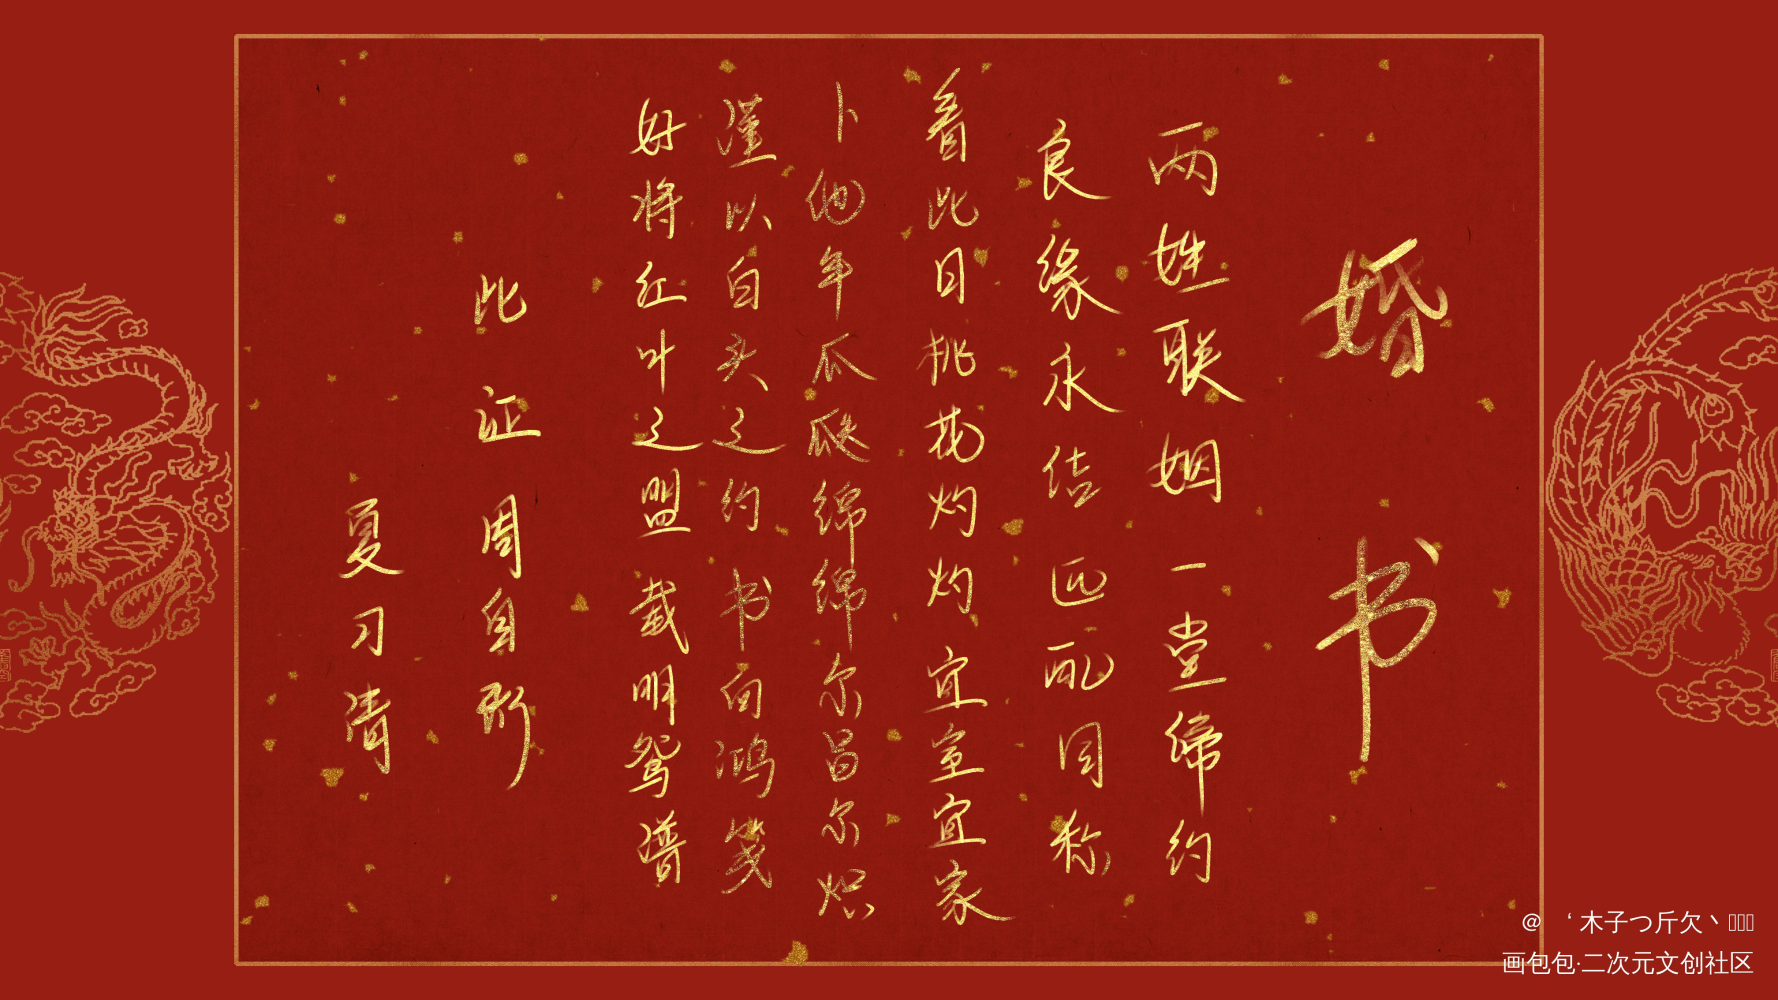 婚书
两姓联姻一堂缔约
良缘永结匹配同称
看此日桃花灼灼宜室宜家
卜他年瓜瓞绵绵尔昌尔炽
谨以白头之约书向鸿笺
好将红叶之盟载明鸳谱
此证周自珩
夏习清
@ ‘木子つ斤欠丶
画包包·二次元文创社区